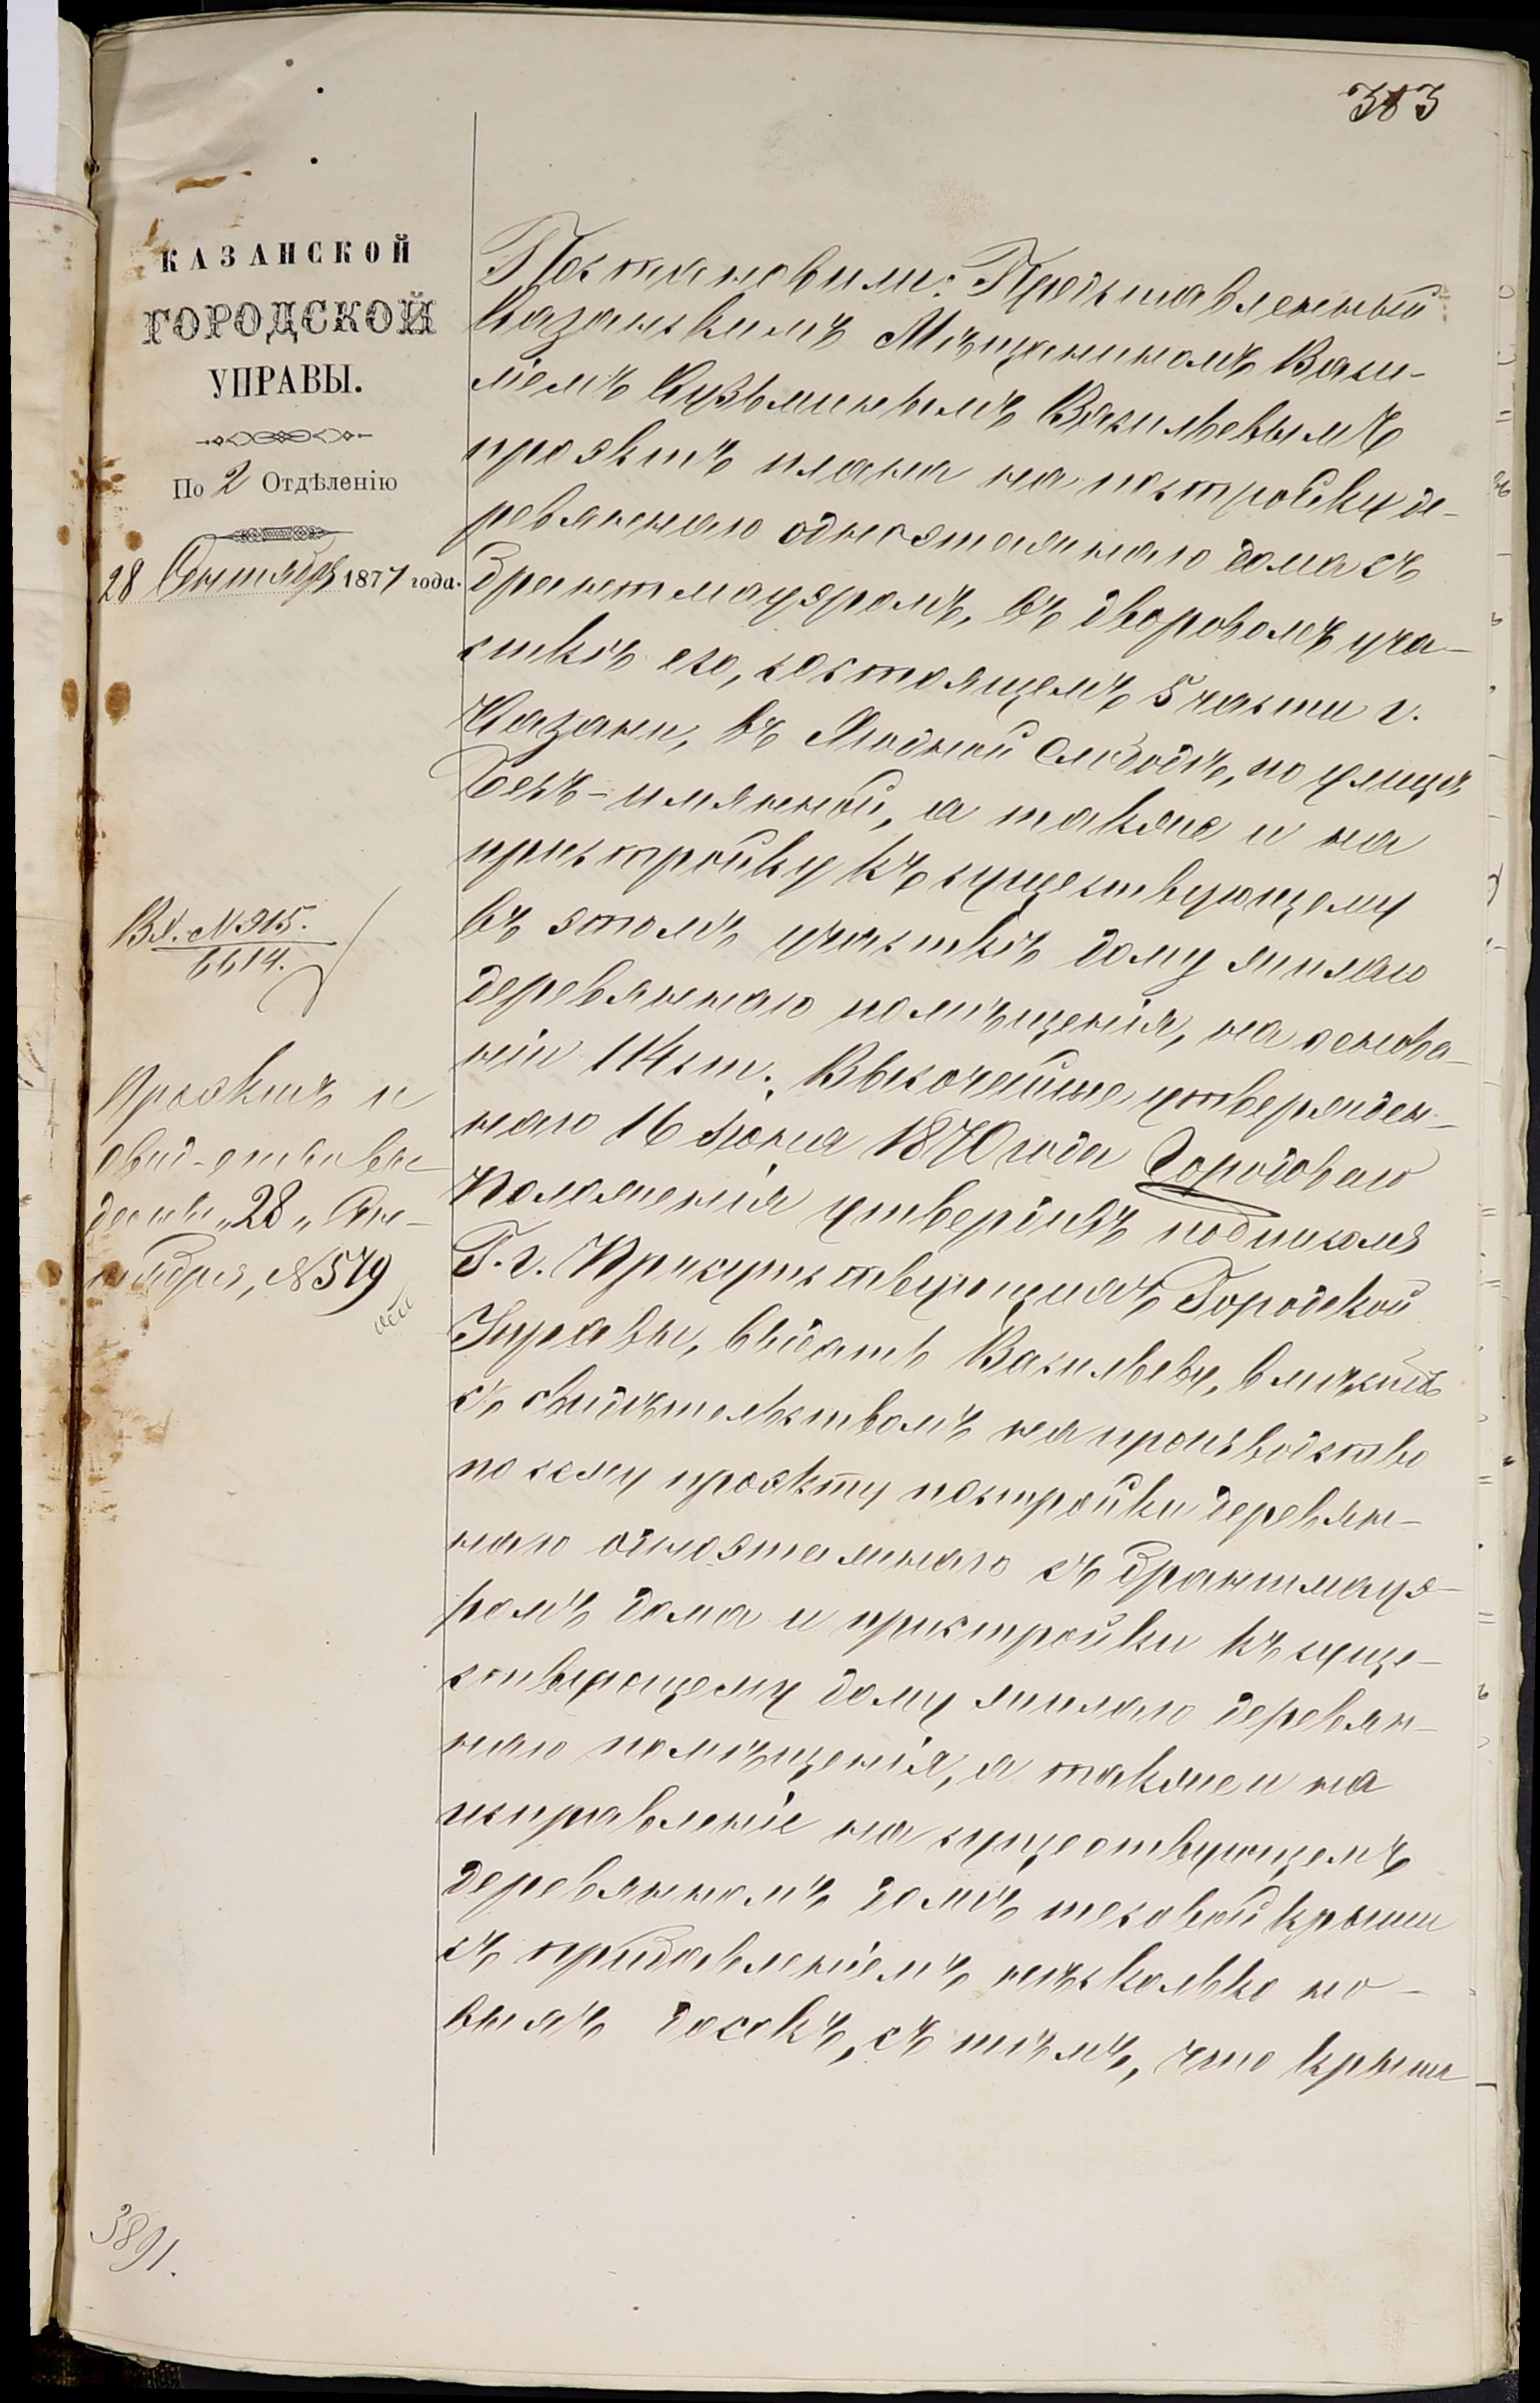 383
КАЗАНСКОЙ
ГОРОДСКОЙ
УПРАВЫ.
По 2 Отдѣленію
28 Сентября 1871 года.
Вх. № 915.
6614.
Проэктъ и
свид-ство вы
даны „28„ Сен-
тября, № 579
3891.
Постановили: Представленный
Казанскимъ Мѣщаниномъ Васи-
ліемъ Кузьминымъ Васильевымъ
проэктъ плана на постройку де-
ревяннаго одноэтажнаго дома съ
брантмауэромъ, въ дворовомъ уча-
сткѣ его, состоящемъ 5 части г.
Казани, въ Ягодной Слободѣ, по улицѣ
Безъ-имянной, а также и на
пристройку къ существующему
въ этомъ участкѣ дому жилаго
деревяннаго помѣщенія, на основа-
ніи 114 ст. Высочайше утвержден-
наго 16 Іюня 1870 года Городоваго
Положенія утвердивъ подписомъ
Г.г. Присутствующихъ Городской
Управы, выдать Васильеву, вмѣстѣ
съ свидѣтельствомъ на производство
по сему проэкту постройки деревян-
наго одноэтажнаго съ брантмауэ-
ромъ дома и пристройки къ суще-
ствующему дому жилаго деревян-
наго помѣщенія, а также и на
исправленіе на существующемъ
деревянномъ домѣ тесовой крыши
съ прибавленіемъ нѣсколько но-
выхъ досокъ, съ тѣмъ, что крыши